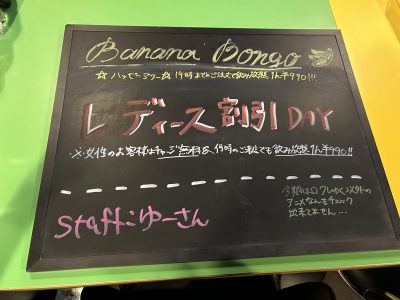 Banana Bongo
☆ハッピーアワー☆ 19時までのご注文で飲み放題1h¥990!!!
レディース割引DAY
※女性のお客様はチャージ無料&19時のご来店でも飲み放題1h¥990!!
staff:ゆーさん
今期はロクしゅん以外の
アニメなんもチェック
出来てません…